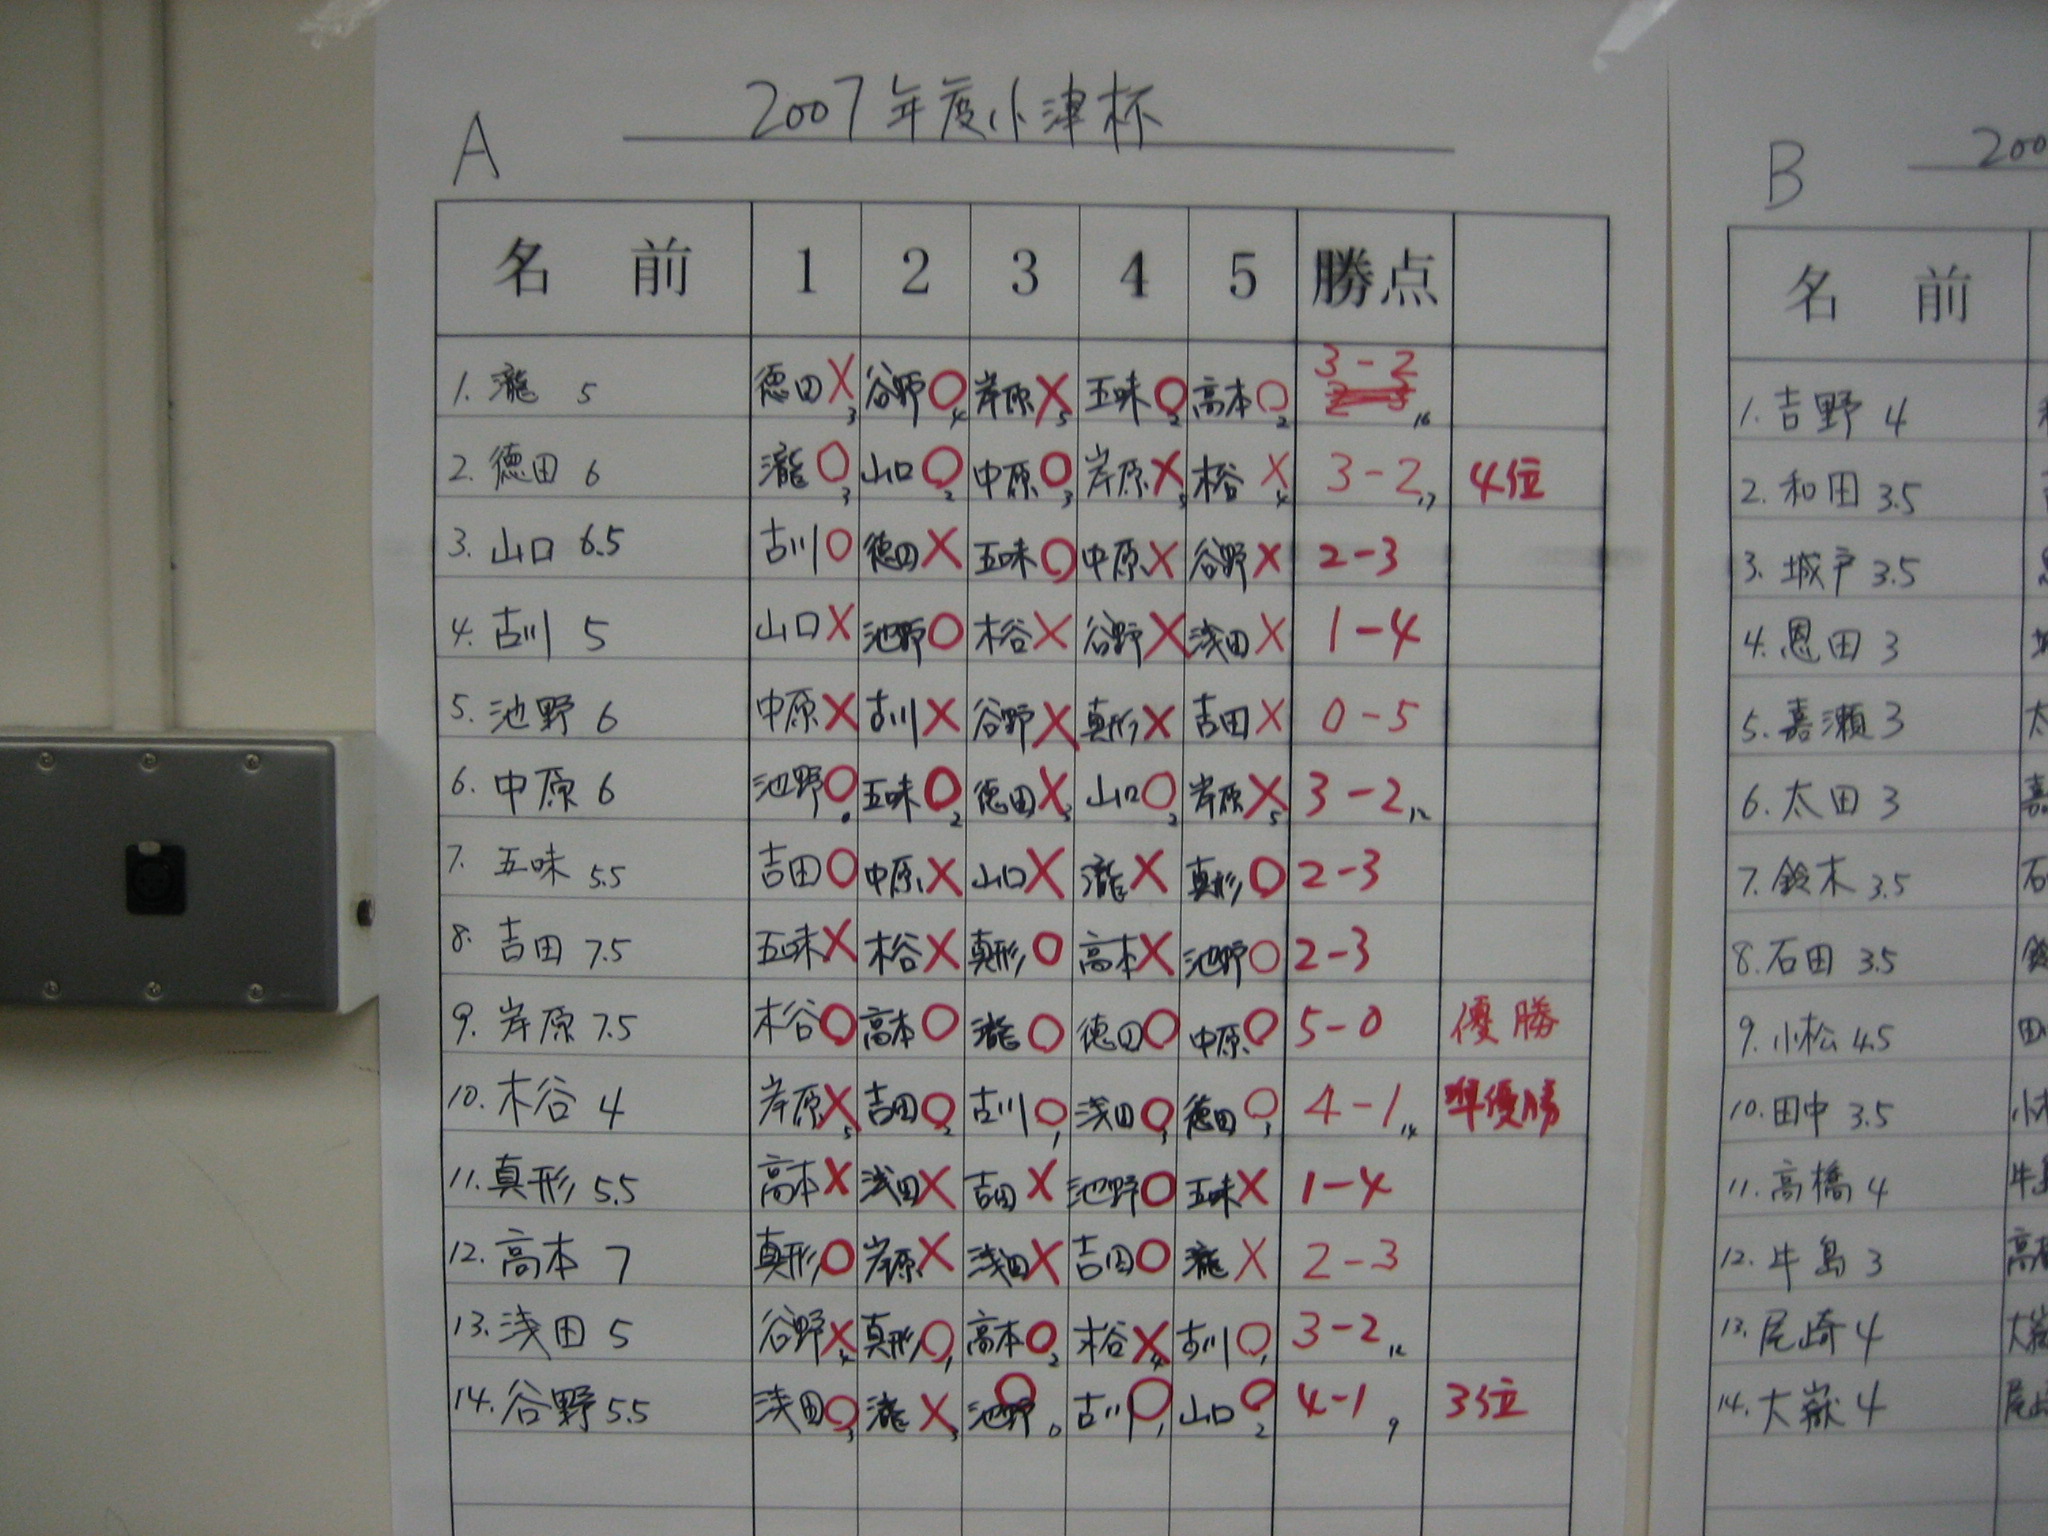 A 2007年度小津杯
名前 1 2 3 4 5 勝点
1. 瀧 5 徳田 X 3 谷野 O 4 岸原 X 5 五味 O 2 高本 O 2 3-2 16
2. 徳田 6 瀧 O 3 山口 O 2 中原 O 3 岸原 X 5 木谷 X 4 3-2 17 4位
3. 山口 6.5 古川 O 徳田 X 五味 O 中原 X 谷野 X 2-3
4. 古川 5 山口 X 池野 O 木谷 X 谷野 X 浅田 X 1-4
5. 池野 6 中原 X 古川 X 谷野 X 真形 X 吉田 X 0-5
6. 中原 6 池野 O 0 五味 O 2 徳田 X 3 山口 O 2 岸原 X 5 3-2 12
7. 五味 5.5 吉田 O 中原 X 山口 X 瀧 X 真形 O 2-3
8. 吉田 7.5 五味 X 木谷 X 真形 O 高本 X 池野 O 2-3
9. 岸原 7.5 木谷 O 高本 O 瀧 O 徳田 O 中原 O 5-0 優勝
10. 木谷 4 岸原 X 5 吉田 O 2 古川 O 1 浅田 O 3 徳田 O 3 4-1 14 準優勝
11. 真形 5.5 高本 X 浅田 X 吉田 X 池野 O 五味 X 1-4
12. 高本 7 真形 O 岸原 X 浅田 X 吉田 O 瀧 X 2-3
13. 浅田 5 谷野 X 4 真形 O 1 高本 O 2 木谷 X 4 古川 O 1 3-2 12
14. 谷野 5.5 浅田 O 3 瀧 X 3 池野 O 0 古川 O 1 山口 O 2 4-1 9 3位
B 200
名前
1. 吉野 4
2. 和田 3.5
3. 城戸 3.5
4. 恩田 3
5. 嘉瀬 3
6. 太田 3
7. 鈴木 3.5
8. 石田 3.5
9. 小松 4.5
10. 田中 3.5
11. 高橋 4
12. 牛島 3
13. 尾崎 4
14. 大嶽 4